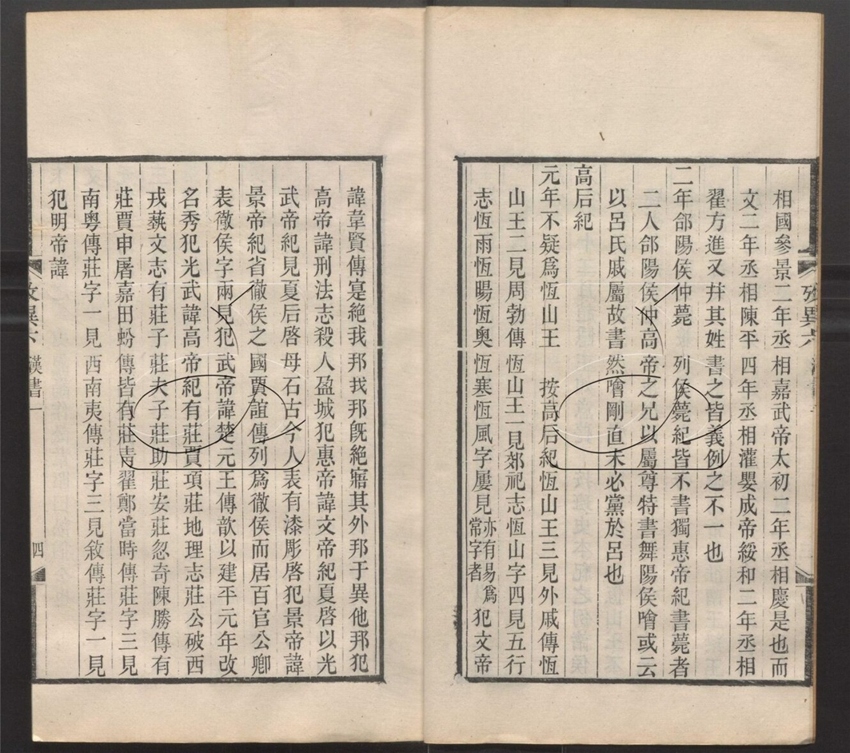 相國參景二年丞相嘉武帝太初二年丞相慶是也而
文二年丞相陳平四年丞相灌嬰成帝綏和二年丞相
翟方進又幷其姓書之皆義例之不一也
二年郃陽侯仲薨 列侯薨紀皆不書獨惠帝紀書薨者
二人郃陽侯仲高帝之兄以屬尊特書舞陽侯噲或云
以呂氏戚屬故書然噲剛直未必黨於呂也
高后紀
元年不疑爲恆山王 按高后紀恆山王三見外戚傳恆
山王二見周勃傳恆山王一見郊祀志恆山字四見五行
志恆雨恆暘恆奧恆寒恆風字屢見亦有易爲常字者犯文帝
諱韋賢傳寔絕我邦我邦旣絕寤其外邦于異他邦犯
高帝諱刑法志殺人盈城犯惠帝諱文帝紀夏啓以光
武帝紀見夏后啓母石古今人表有漆彫啓犯景帝諱
景帝紀省徹侯之國賈誼傳列爲徹侯而居百官公卿
表徹侯字兩見犯武帝諱楚元王傳歆以建平元年改
名秀犯光武諱高帝紀有莊賈項莊地理志莊公破西
戎蓺文志有莊子莊夫子莊助莊安莊忽奇陳勝傳有
莊賈申屠嘉田蚡傳皆有莊靑翟鄭當時傳莊字三見
南粵傳莊字一見西南夷傳莊字三見敘傳莊字一見
犯明帝諱
攷異六 漢書一 四